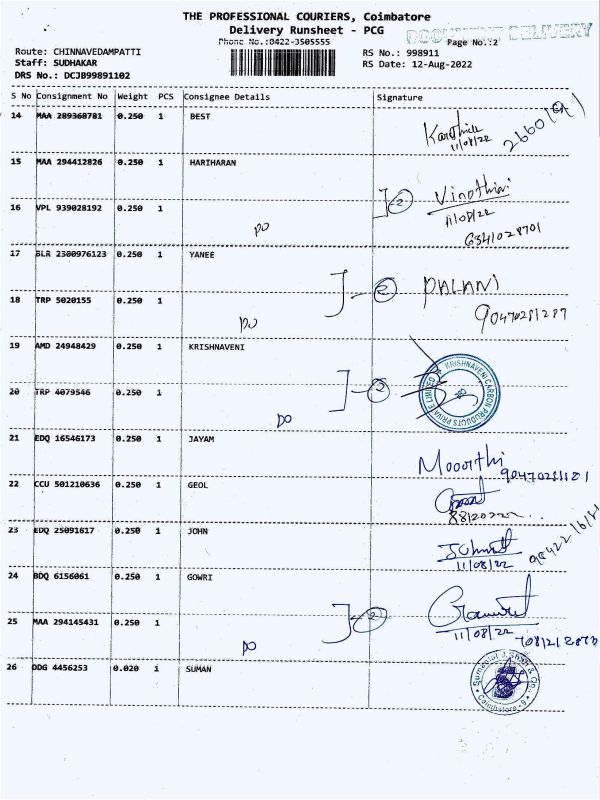 THE PROFESSIONAL COURIERS, Coimbatore
Delivery Runsheet - PCG
DOCUMENT DELIVERY
Phone No.:0422-3505555
Page No.:2
Route: CHINNAVEDAMPATTI
RS No.: 998911
Staff: SUDHAKAR
RS Date: 12-Aug-2022
DRS No.: DCJB99891102
S No Consignment No Weight PCS Consignee Details Signature
14 MAA 289368781 0.250 1 BEST
11/08/22
15 MAA 294412826 0.250 1 HARIHARAN
2 Vinothini
11/08/22
16 VPL 939028192 0.250 1
DO
6341028701
17 BLR 2300976123 0.250 1 YANEE
2 PALANI
18 TRP 5020155 0.250 1
DO
90470281287
19 AMD 24948429 0.250 1 KRISHNAVENI
KRISHNAVENI CARBON PRODUCTS PRIVATE LIMITED
20 TRP 4079546 0.250 1
2
DO
21 EDQ 16546173 0.250 1 JAYAM
Mooorthi
22 CCU 501210636 0.250 1 GEOL
23 EDQ 25091617 0.250 1 JOHN
11/08/22
24 BDQ 6156061 0.250 1 GOWRI
25 MAA 294145431 0.250 1
2
11/08/22
DO
26 ODG 4456253 0.020 1 SUMAN